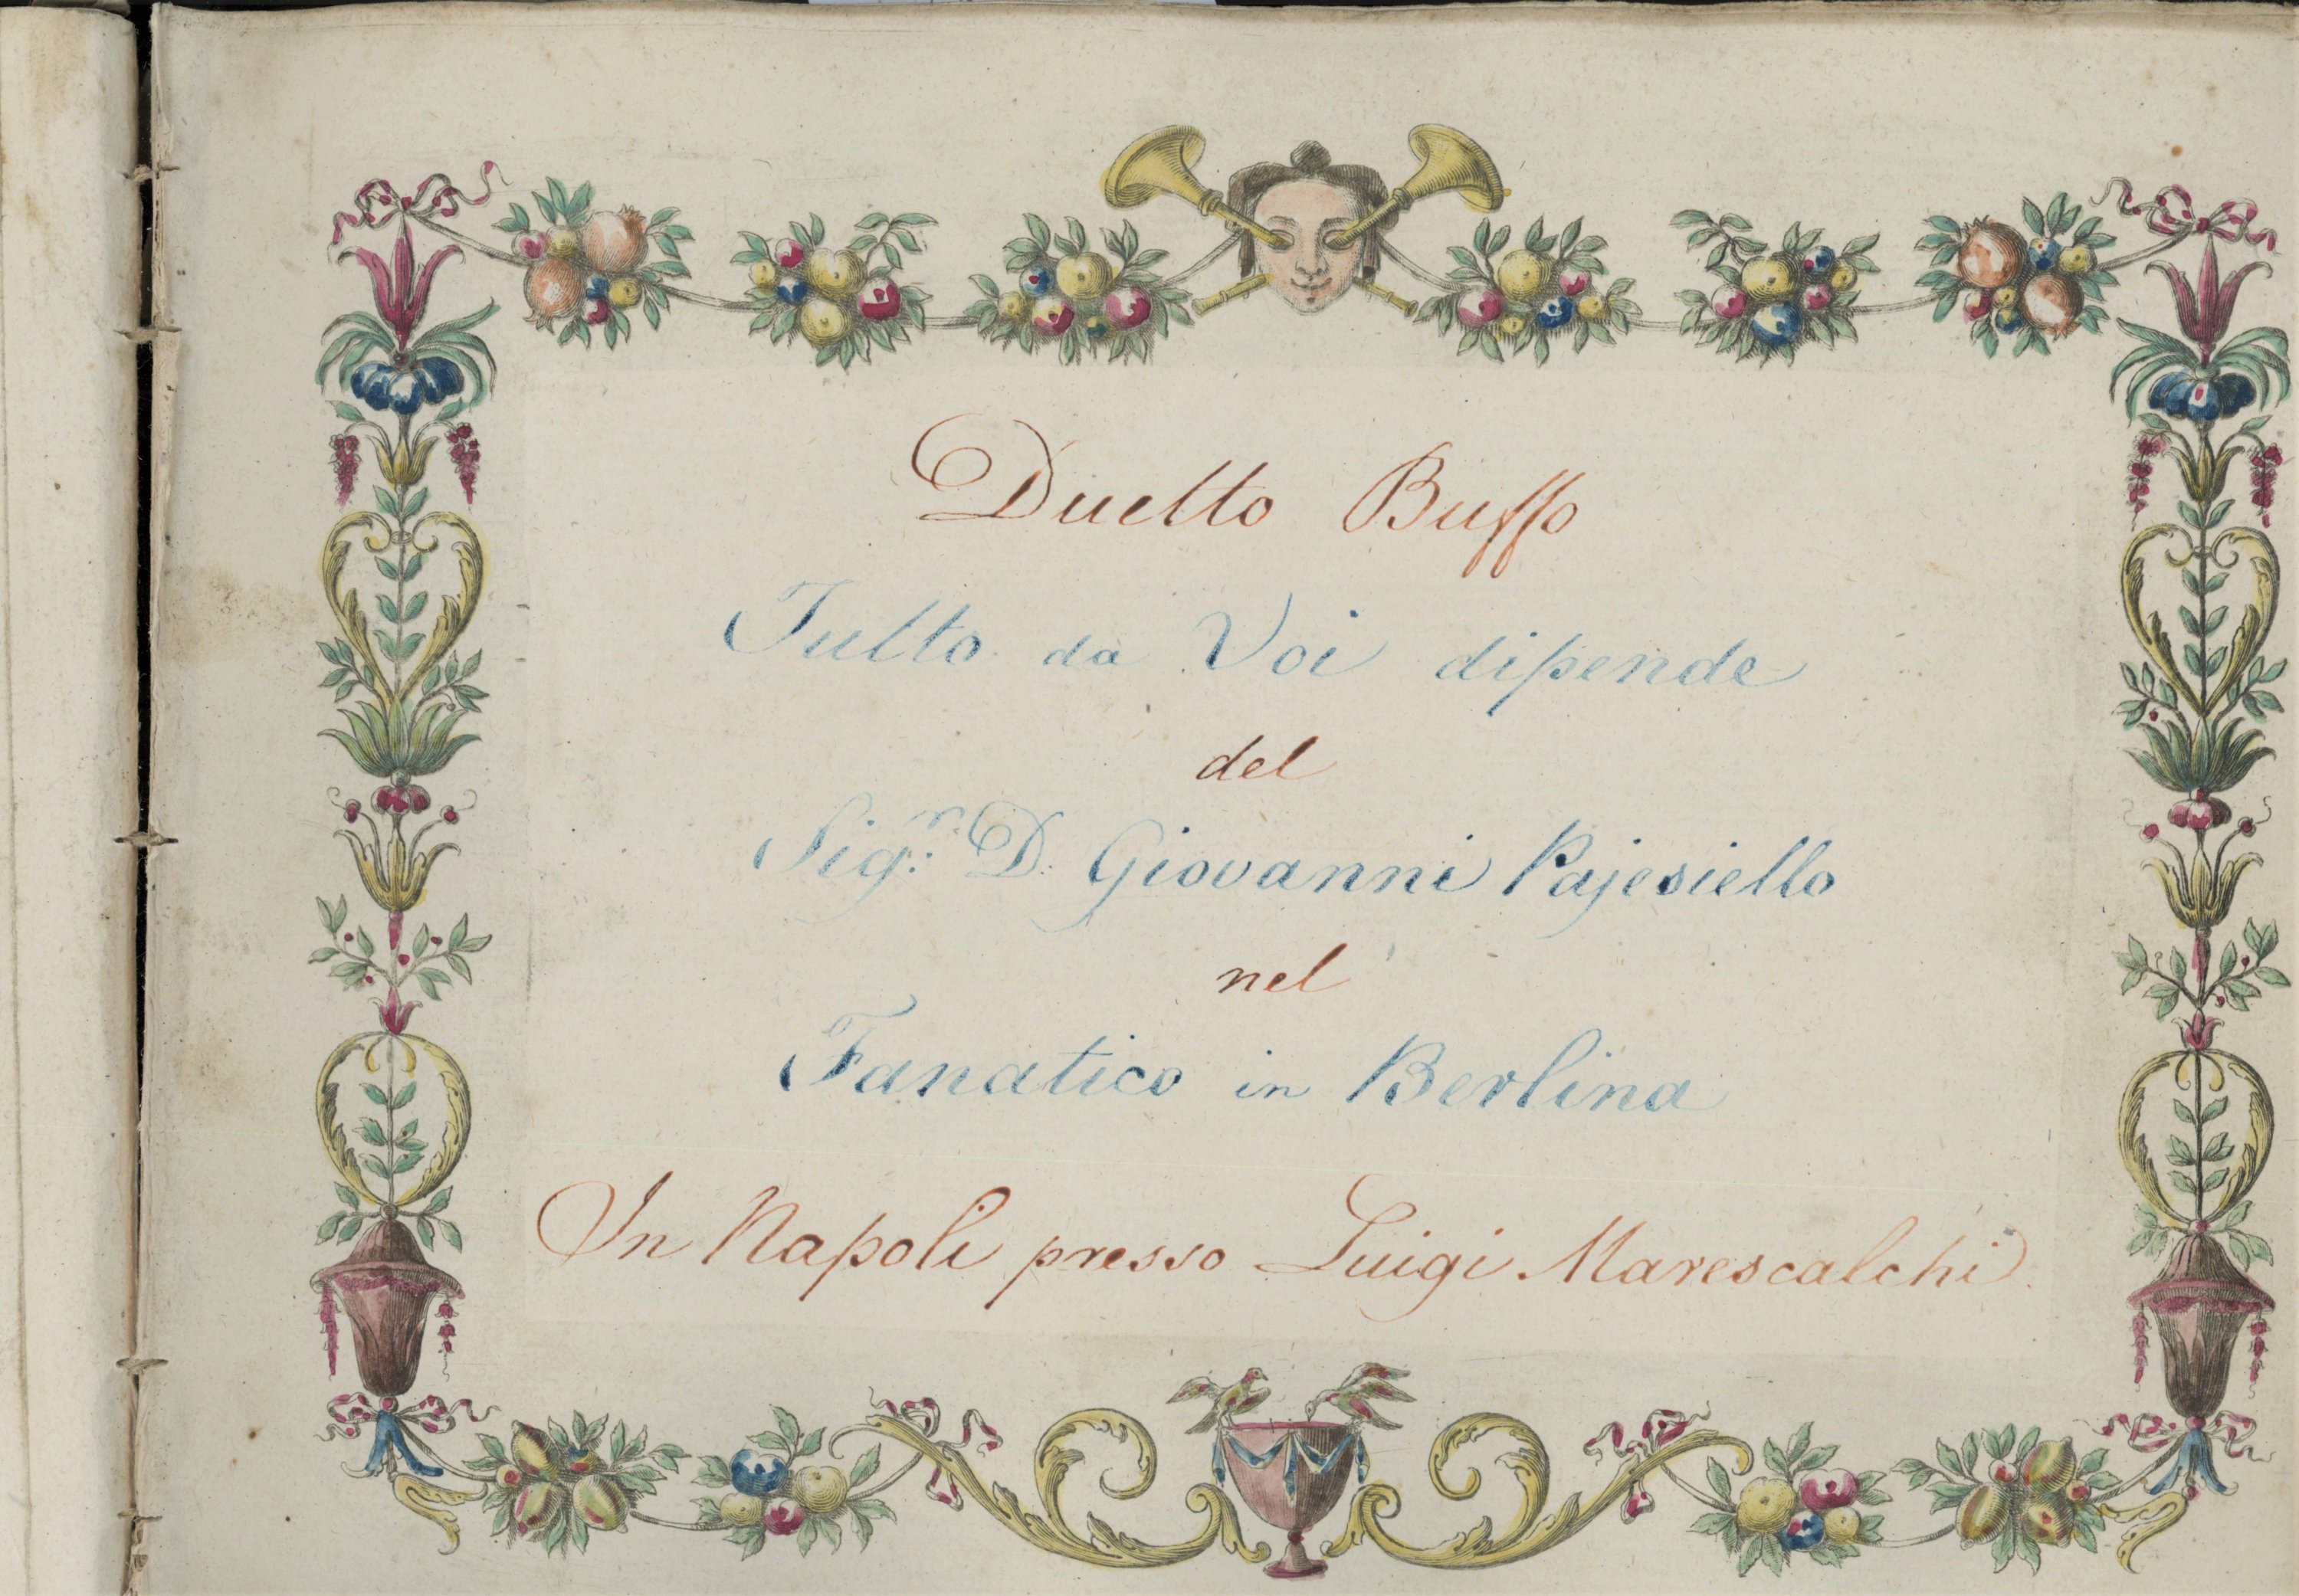 Duetto Buffo
Tutto da Voi dipende
del
Sig.r D. Giovanni Pajesiello
nel
Fanatico in Berlina
In Napoli presso Luigi Marescalchi